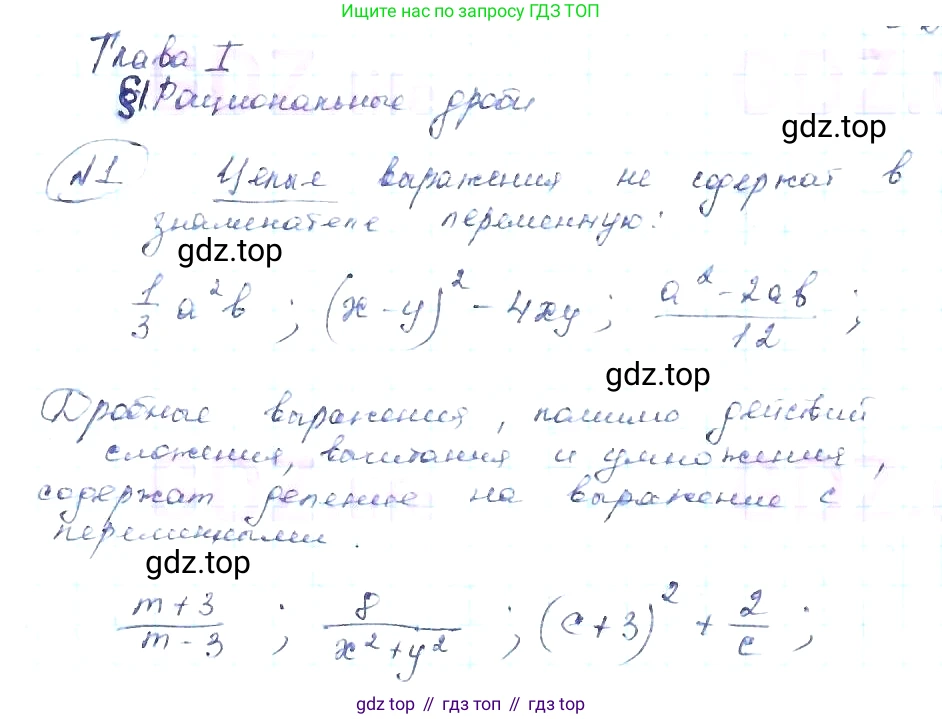 Ищите нас по запросу ГДЗ ТОП
Глава I
§1. Рациональные дроби
gdz.top
№1 Целые выражения не содержат в
знаменателе переменную:
gdz.top
1/3 a²b ; (x-y)² - 4xy ; (a² - 2ab)/12 ;
gdz.top
Дробные выражения, помимо действий
сложения, вычитания и умножения,
содержат деление на выражение с
переменными.
gdz.top
(m+3)/(m-3) ; 8/(x²+y²) ; (c+3)² + 2/c ;
gdz.top // гдз топ // gdz top // гдз топ